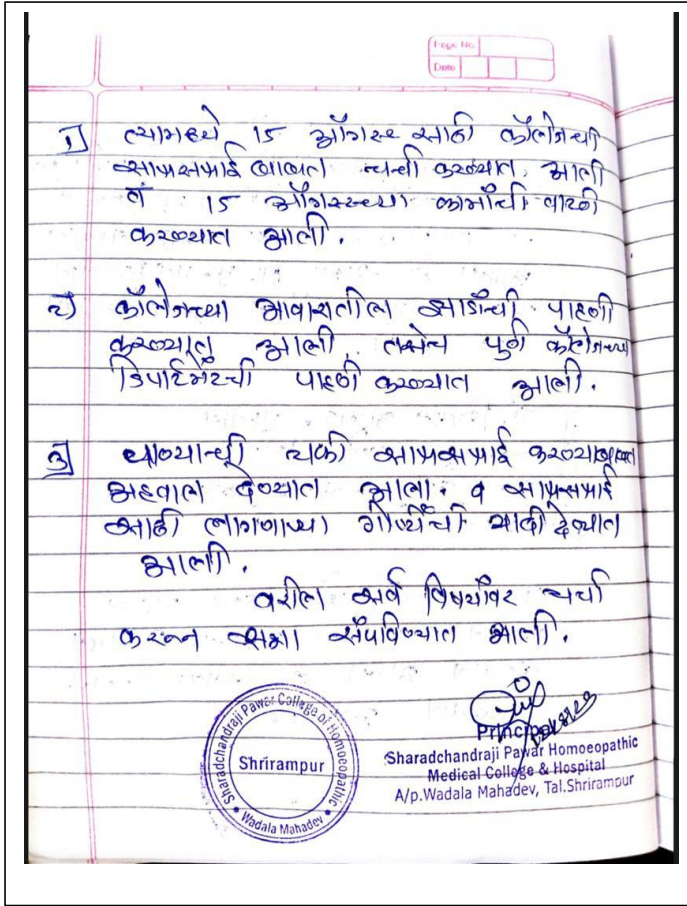 Page No.
Date
१) त्यामध्ये 15 ऑगस्ट साठी कॉलेजची
साफसफाई बाबत चर्चा करण्यात आली
व 15 ऑगस्टच्या कामांची वाटणी
करण्यात आली.
२) कॉलेजच्या आवारातील झाडांची पाहणी
करण्यात आली, तसेच पुर्ण कॉलेजच्या
डिपार्टमेंटची पाहणी करण्यात आली.
३) पाण्याची टाकी साफसफाई करण्याबाबत
अहवाल देण्यात आला. व साफसफाई
साठी लागणाऱ्या गोष्टींची यादी देण्यात
आली.
वरील सर्व विषयांवर चर्चा
करून सभा संपविण्यात आली.
Sharadchandraji Pawar College of Homoeopathic
Shrirampur
Wadala Mahadev
Principal
Sharadchandraji Pawar Homoeopathic
Medical College & Hospital
A/p.Wadala Mahadev, Tal.Shrirampur